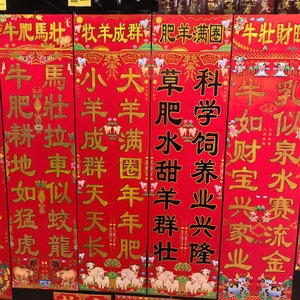 牛肥馬壯
馬壯拉車似蛟龍
牛肥耕地如猛虎
牧羊成群
大羊满圈年年肥
小羊成群天天长
肥羊满圈
科学饲养业兴隆
草肥水甜羊群壮
牛壮财旺
乳似泉水赛流金
牛如财宝兴家业